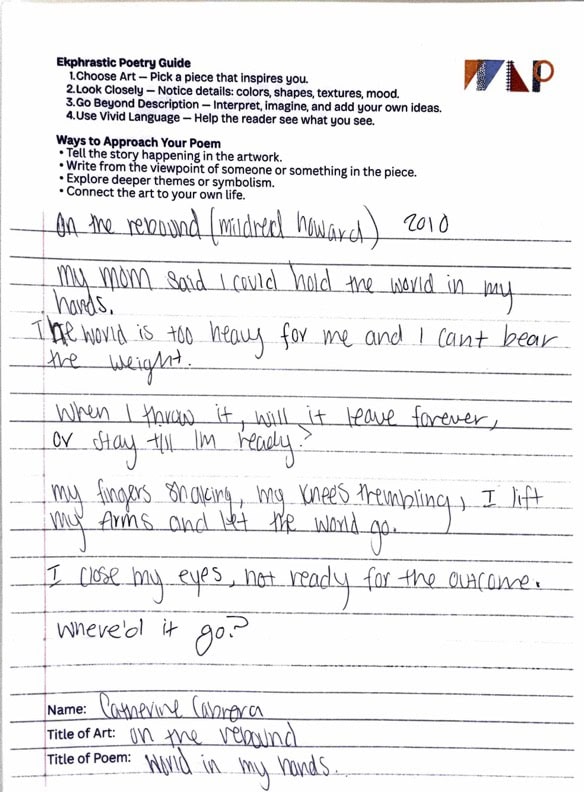 Ekphrastic Poetry Guide
1.Choose Art – Pick a piece that inspires you.
2.Look Closely – Notice details: colors, shapes, textures, mood.
3.Go Beyond Description – Interpret, imagine, and add your own ideas.
4.Use Vivid Language – Help the reader see what you see.
Ways to Approach Your Poem
• Tell the story happening in the artwork.
• Write from the viewpoint of someone or something in the piece.
• Explore deeper themes or symbolism.
• Connect the art to your own life.
On the rebound (mildred howard) 2010
My mom said I could hold the world in my
hands.
The world is too heavy for me and I cant bear
the weight.
When I throw it, will it leave forever,
or stay till Im ready?
My fingers shaking, my knees trembling, I lift
my Arms and let the world go.
I close my eyes, not ready for the outcome.
Where'd it go?
Name: Catherine Cabrera
Title of Art: On the rebound
Title of Poem: World in my hands.